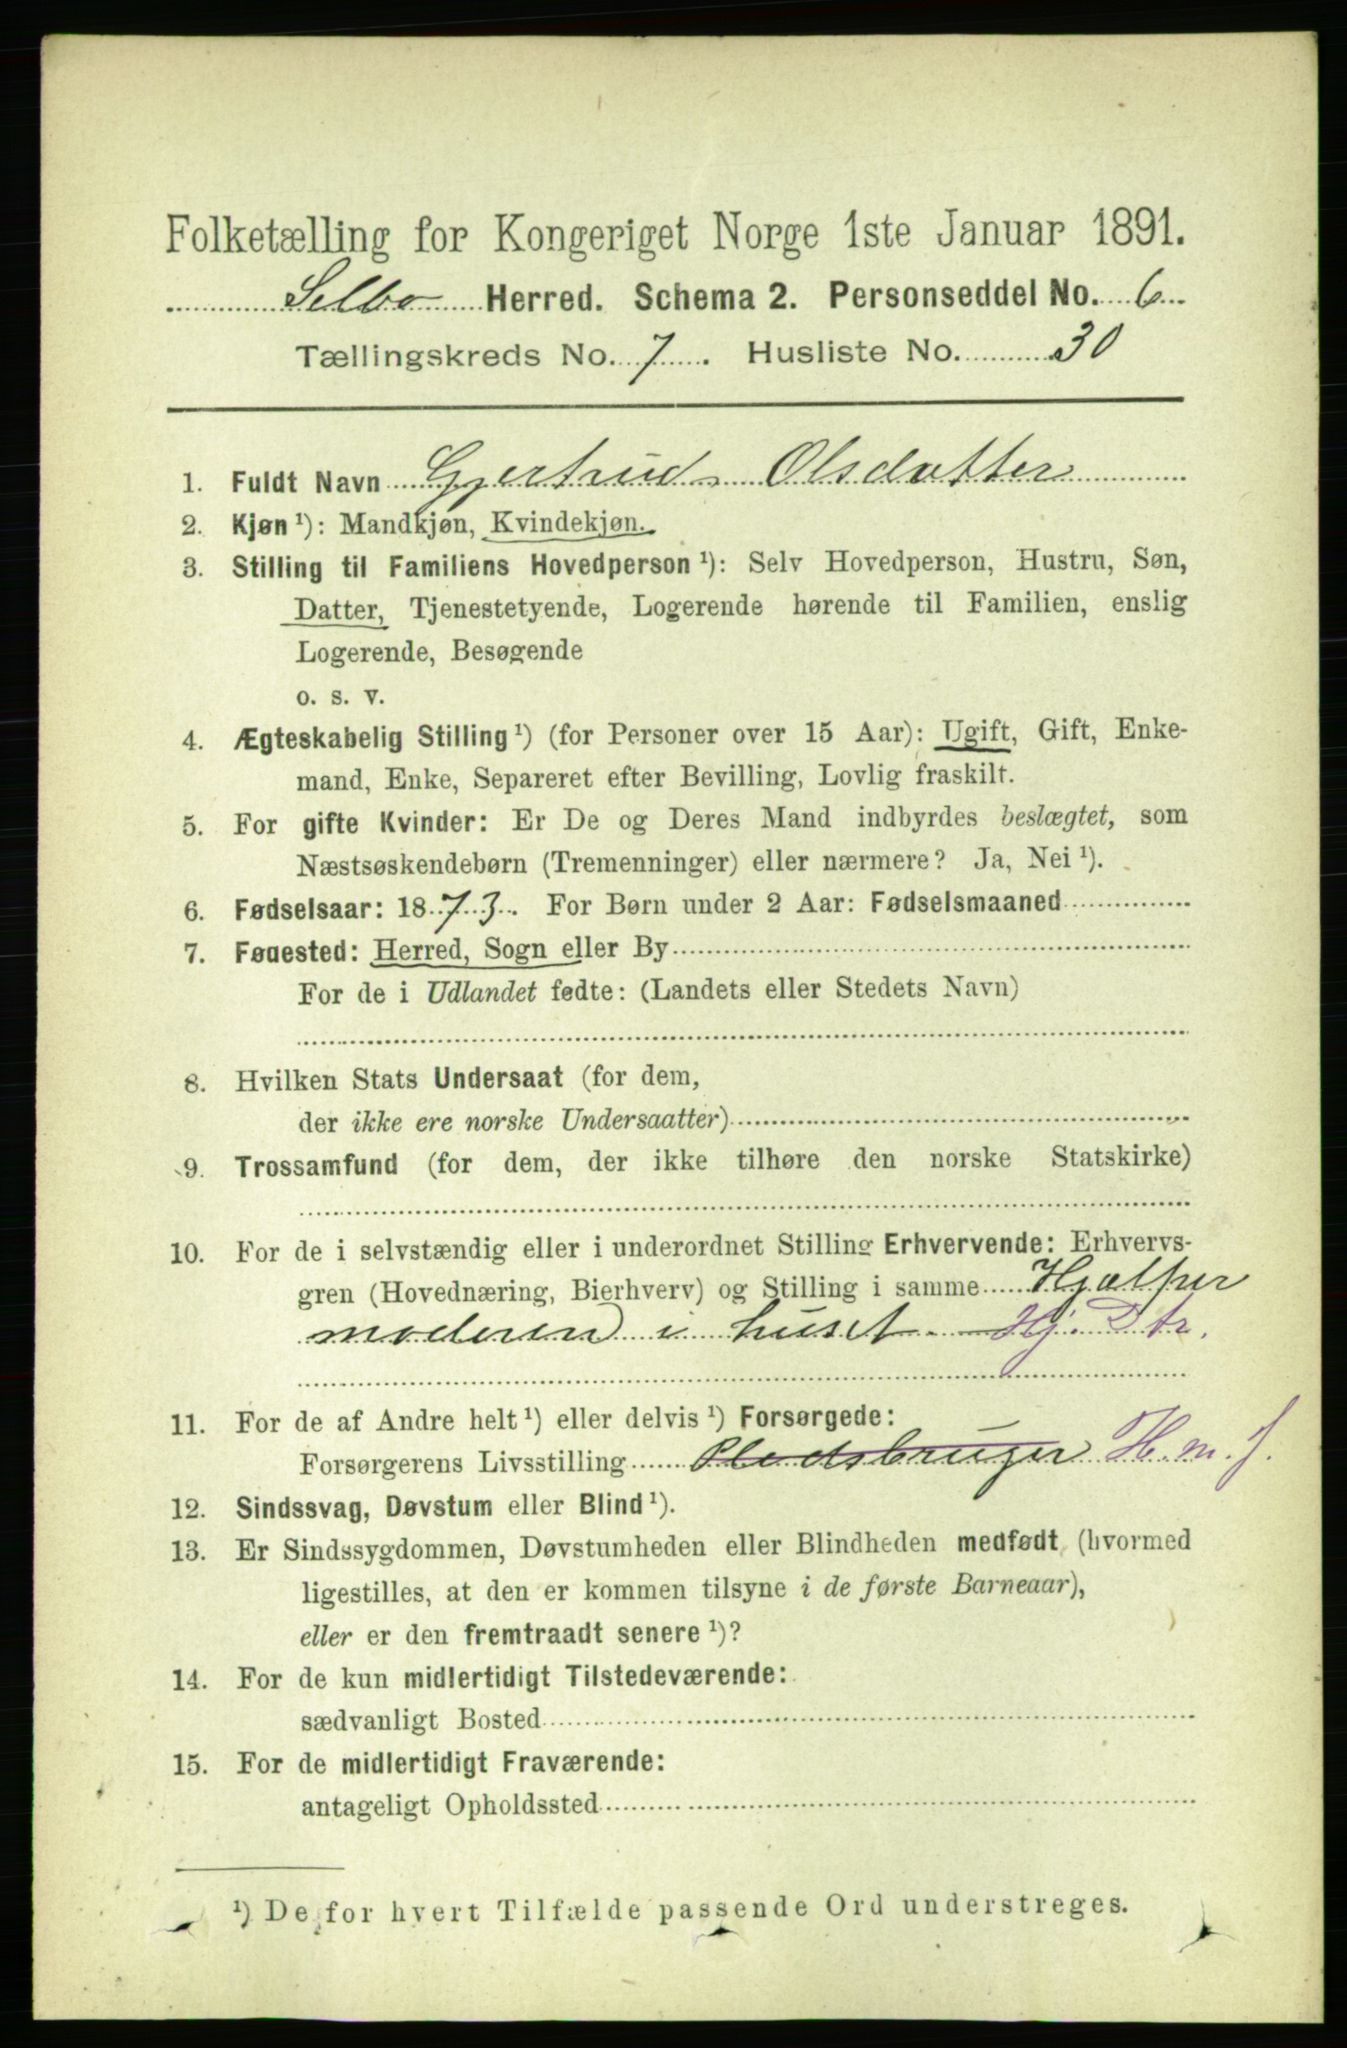 Folketælling for Kongeriget Norge 1ste Januar 1891.
Selbo Herred. Schema 2. Personseddel No. 6
Tællingskreds No. 7. Husliste No. 30
1. Fuldt Navn Gjertrud Olsdatter
2. Kjøn ¹): Mandkjøn, Kvindekjøn.
3. Stilling til Familiens Hovedperson ¹): Selv Hovedperson, Hustru, Søn,
Datter, Tjenestetyende, Logerende hørende til Familien, enslig
Logerende, Besøgende
o. s. v.
4. Ægteskabelig Stilling ¹) (for Personer over 15 Aar): Ugift, Gift, Enke-
mand, Enke, Separeret efter Bevilling, Lovlig fraskilt.
5. For gifte Kvinder: Er De og Deres Mand indbyrdes beslægtet, som
Næstsøskendebørn (Tremenninger) eller nærmere? Ja, Nei ¹).
6. Fødselsaar: 1873. For Børn under 2 Aar: Fødselsmaaned
7. Fødested: Herred, Sogn eller By
For de i Udlandet fødte: (Landets eller Stedets Navn)
8. Hvilken Stats Undersaat (for dem,
der ikke ere norske Undersaatter)
9. Trossamfund (for dem, der ikke tilhøre den norske Statskirke)
10. For de i selvstændig eller i underordnet Stilling Erhvervende: Erhvervs-
gren (Hovednæring, Bierhverv) og Stilling i samme Hjælper
moderen i huset. Hj. Dtr.
11. For de af Andre helt ¹) eller delvis ¹) Forsørgede:
Forsørgerens Livsstilling Pladsbruger H. m. J.
12. Sindssvag, Døvstum eller Blind ¹).
13. Er Sindssygdommen, Døvstumheden eller Blindheden medfødt (hvormed
ligestilles, at den er kommen tilsyne i de første Barneaar),
eller er den fremtraadt senere ¹)?
14. For de kun midlertidigt Tilstedeværende:
sædvanligt Bosted
15. For de midlertidigt Fraværende:
antageligt Opholdssted
¹) De for hvert Tilfælde passende Ord understreges.